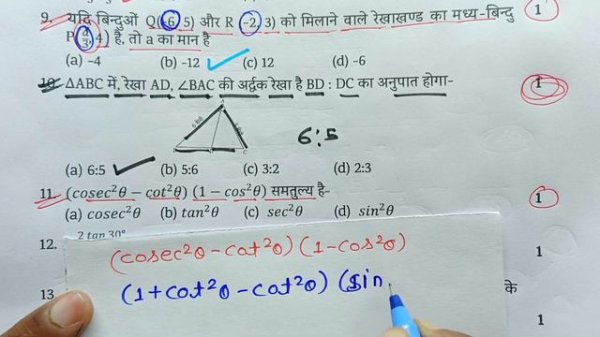 9. यदि बिन्दुओं Q(-6, 5) और R (-2, 3) को मिलाने वाले रेखाखण्ड का मध्य-बिन्दु
P(a/3, 4) है, तो a का मान है
1
(a) -4 (b) -12 (c) 12 (d) -6
10. ΔABC में, रेखा AD, ∠BAC की अर्द्धक रेखा है BD : DC का अनुपात होगा-
1
6:5
(a) 6:5 (b) 5:6 (c) 3:2 (d) 2:3
11. (cosec²θ − cot²θ) (1 − cos²θ) समतुल्य है-
1
(a) cosec²θ (b) tan²θ (c) sec²θ (d) sin²θ
12. 2 tan 30°
1
(cosec²θ - cot²θ) (1-cos²θ)
13
(1+cot²θ - cot²θ) (sin
के
1